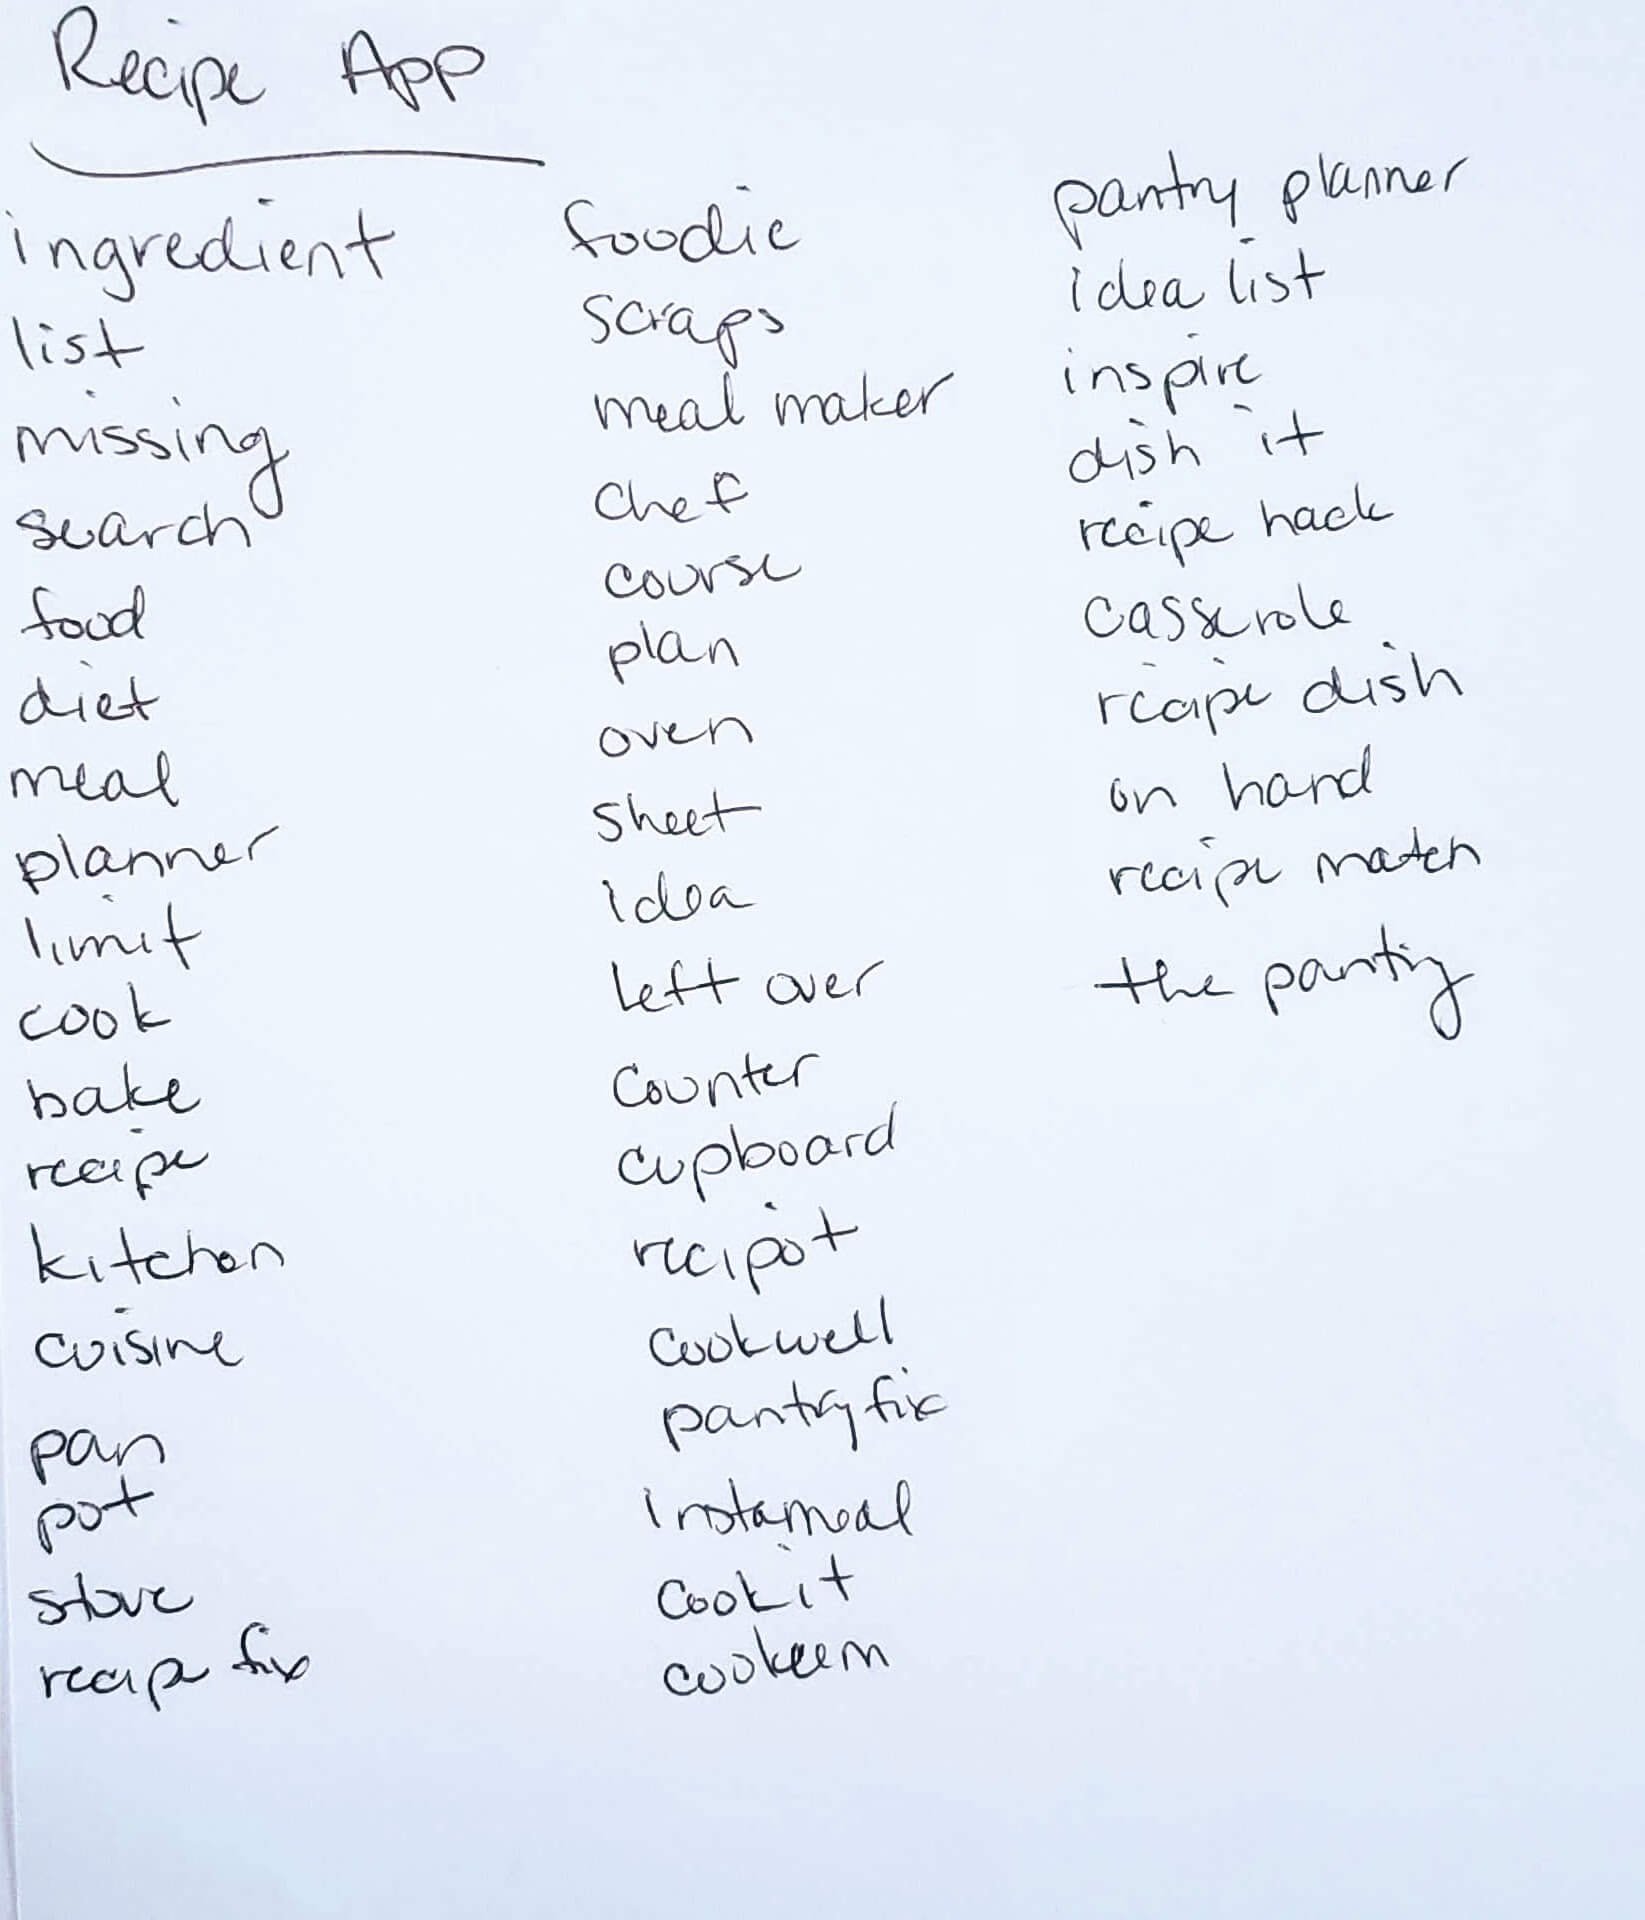 Recipe App
ingredient
list
missing
search
food
diet
meal
planner
limit
cook
bake
recipe
kitchen
cuisine
pan
pot
stove
recipe fix
foodie
scraps
meal maker
chef
course
plan
oven
sheet
idea
left over
counter
cupboard
recipot
cookwell
pantryfix
instameal
cookit
cookeem
pantry planner
idea list
inspire
dish it
recipe hack
casserole
recipe dish
on hand
recipe match
the pantry